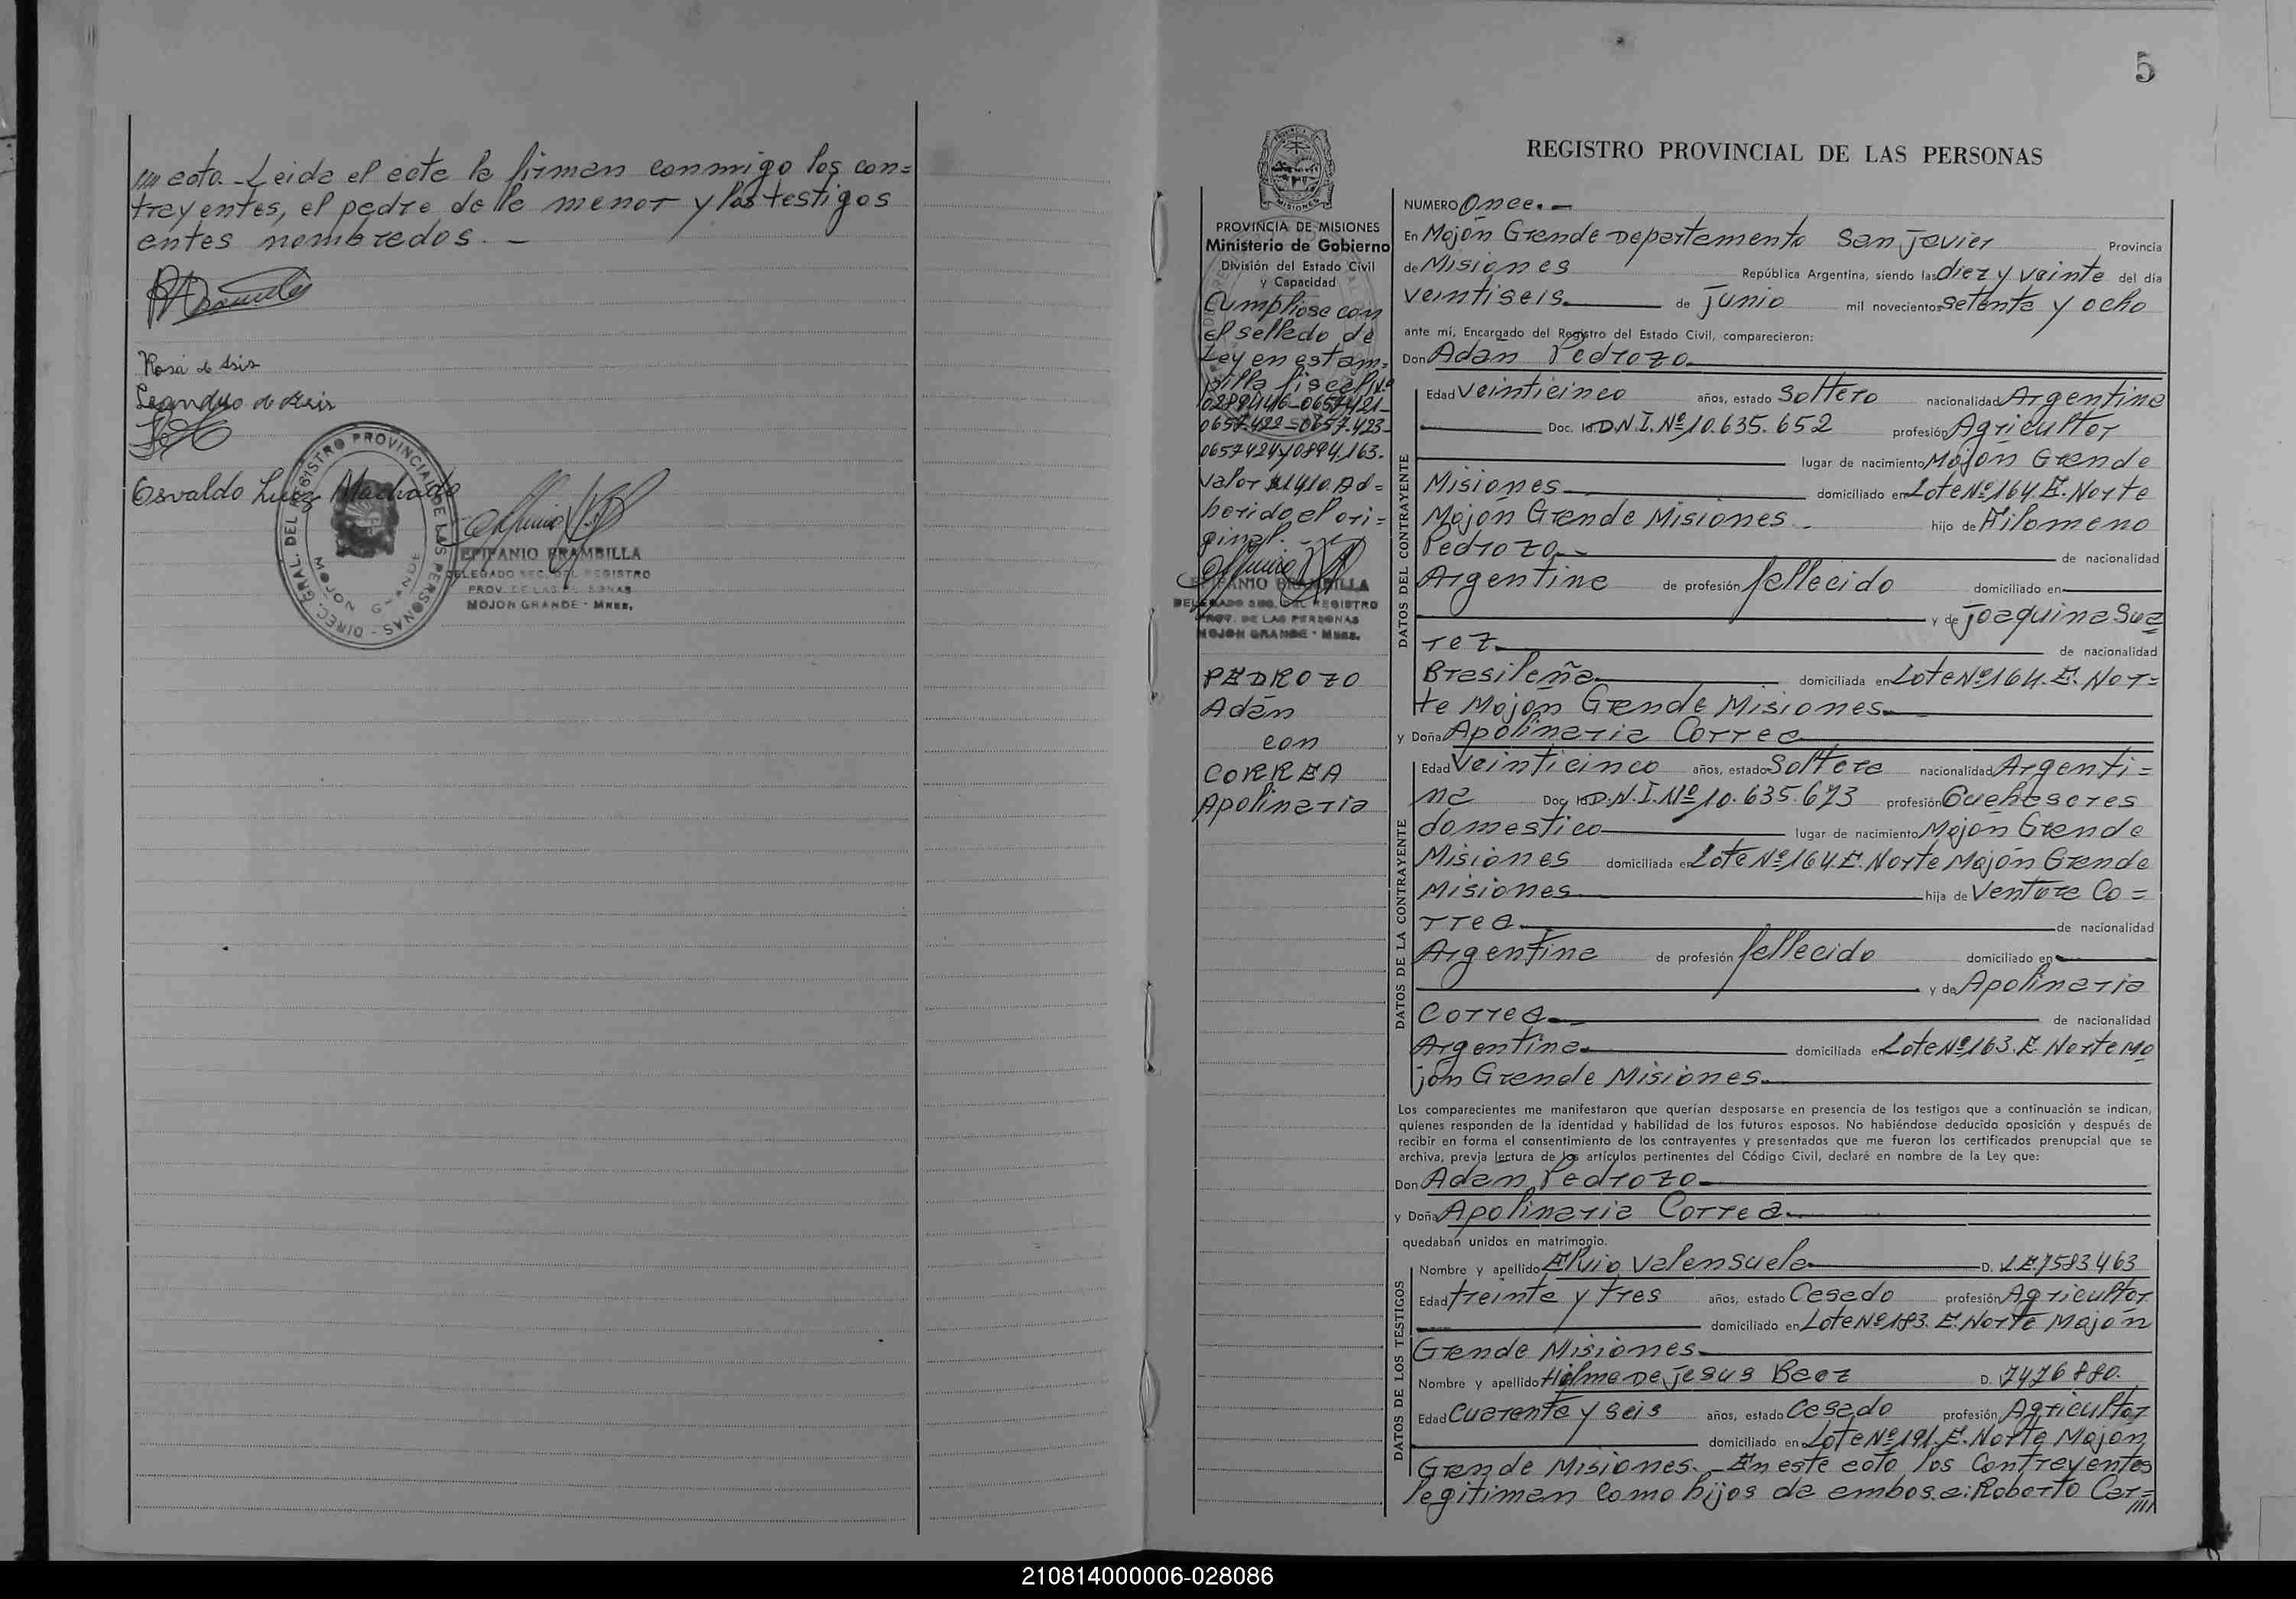 //// acto. - Leida el acta la firman conmigo los con=
trayentes, el padre de la menor y los testigos
antes nombrados. -
Rosa de Asis
Leandro de Asis
Osvaldo Luis Machado
DIREC. GRAL. DEL REGISTRO PROVINCIAL DE LAS PERSONAS -
MOJON GRANDE
EPIFANIO BRAMBILLA
DELEGADO SEC. DEL REGISTRO
PROV. DE LAS PERSONAS
MOJON GRANDE - MNES.
5
REGISTRO PROVINCIAL DE LAS PERSONAS
PROVINCIA DE MISIONES
Ministerio de Gobierno
División del Estado Civil
y Capacidad
Cumpliose con
el sellado de
Ley en estam=
pilla fiscal Nº
0657.422-0657.423-
valor $1410. Ad=
herido al ori=
ginal. -
EPIFANIO BRAMBILLA
DELEGADO SEC. DEL REGISTRO
PROV. DE LAS PERSONAS
MOJON GRANDE - MNES.
PEDROZO
Adán
con
CORREA
Apolinaria
NUMERO Once. -
En Mojón Grande Departamento San Javier Provincia
de Misiones República Argentina, siendo las diez y veinte del día
veintiseis de junio mil novecientos setenta y ocho
ante mí, Encargado del Registro del Estado Civil, comparecieron:
Don Adán Pedrozo
DATOS DEL CONTRAYENTE
Edad Veinticinco años, estado Soltero nacionalidad Argentina
Doc. Id. D.N.I. Nº 10.635.652 profesión Agricultor
lugar de nacimiento Mojón Grande
Misiones domiciliado en Lote Nº 164. E. Norte
Mojón Grande Misiones. hijo de Filomeno
Pedrozo. de nacionalidad
Argentina de profesión fallecido domiciliado en
y de Joaquina Sua
rez de nacionalidad
Brasileña domiciliada en Lote Nº 164. E. Nor=
te Mojón Grande Misiones.
y Doña Apolinaria Correa
DATOS DE LA CONTRAYENTE
Edad Veinticinco años, estado Soltera nacionalidad Argenti=
na Doc. Id. D.N.I. Nº 10.635.673 profesión Quehaseres
domestico lugar de nacimiento Mojón Grande
Misiones domiciliada en Lote Nº 164. E. Norte Mojón Grande
Misiones hija de Ventura Co=
rrea de nacionalidad
Argentina de profesión fallecido domiciliado en
y de Apolinaria
Correa. de nacionalidad
Argentina domiciliada en Lote Nº 163. E. Norte Mo
jón Grande Misiones.
Los comparecientes me manifestaron que querían desposarse en presencia de los testigos que a continuación se indican,
quienes responden de la identidad y habilidad de los futuros esposos. No habiéndose deducido oposición y después de
recibir en forma el consentimiento de los contrayentes y presentados que me fueron los certificados prenupcial que se
archiva, previa lectura de los artículos pertinentes del Código Civil, declaré en nombre de la Ley que:
Don Adán Pedrozo
y Doña Apolinaria Correa.
quedaban unidos en matrimonio.
DATOS DE LOS TESTIGOS
Nombre y apellido Elvio Valensuela D. L.E. 7583463
Edad treinta y tres años, estado Casado profesión Agricultor
domiciliado en Lote Nº 183. E. Norte Mojón
Grande Misiones.
Nombre y apellido Hilma De Jesus Baez D. 7476880.
Edad Cuarenta y seis años, estado Casado profesión Agricultor
domiciliado en Lote Nº 191. E. Norte Mojón
Grande Misiones. - En este acto los Contrayentes
legitiman como hijos de ambos a: Roberto Car=
////
210814000006-028086